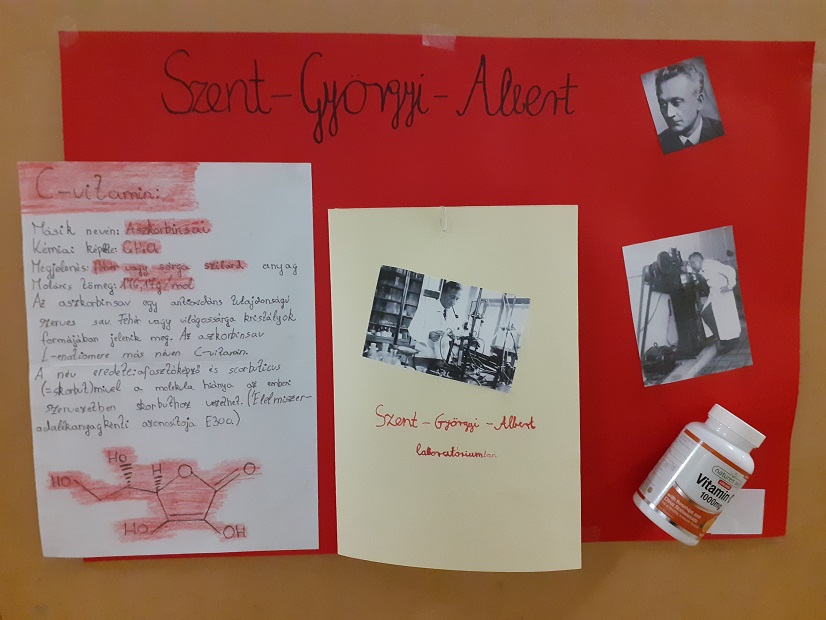 Szent-Györgyi-Albert
C-vitamin:
Másik nevén: Aszkorbinsav
Kémiai képlete: C₆H₈O₆
Megjelenés: Fehér vagy sárga szilárd anyag
Moláris tömeg: 176,12g/mol
Az aszkorbinsav egy antioxidáns tulajdonságú
szerves sav. Fehér vagy világossárga kristályok
formájában jelenik meg. Az aszkorbinsav
L-enatiomere más néven C-vitamin.
A név eredete: afosztóképző és scorbuticus
(=skorbut) mivel a molekula hiánya az emberi
szervezetben skorbuthoz vezethet. (Élelmiszer-
adalékanyagkénti azonosítója E300.)
HO
HO
H
O
O
HO
OH
Szent-Györgyi-Albert
laboratóriumban
Vitamin C
1000mg